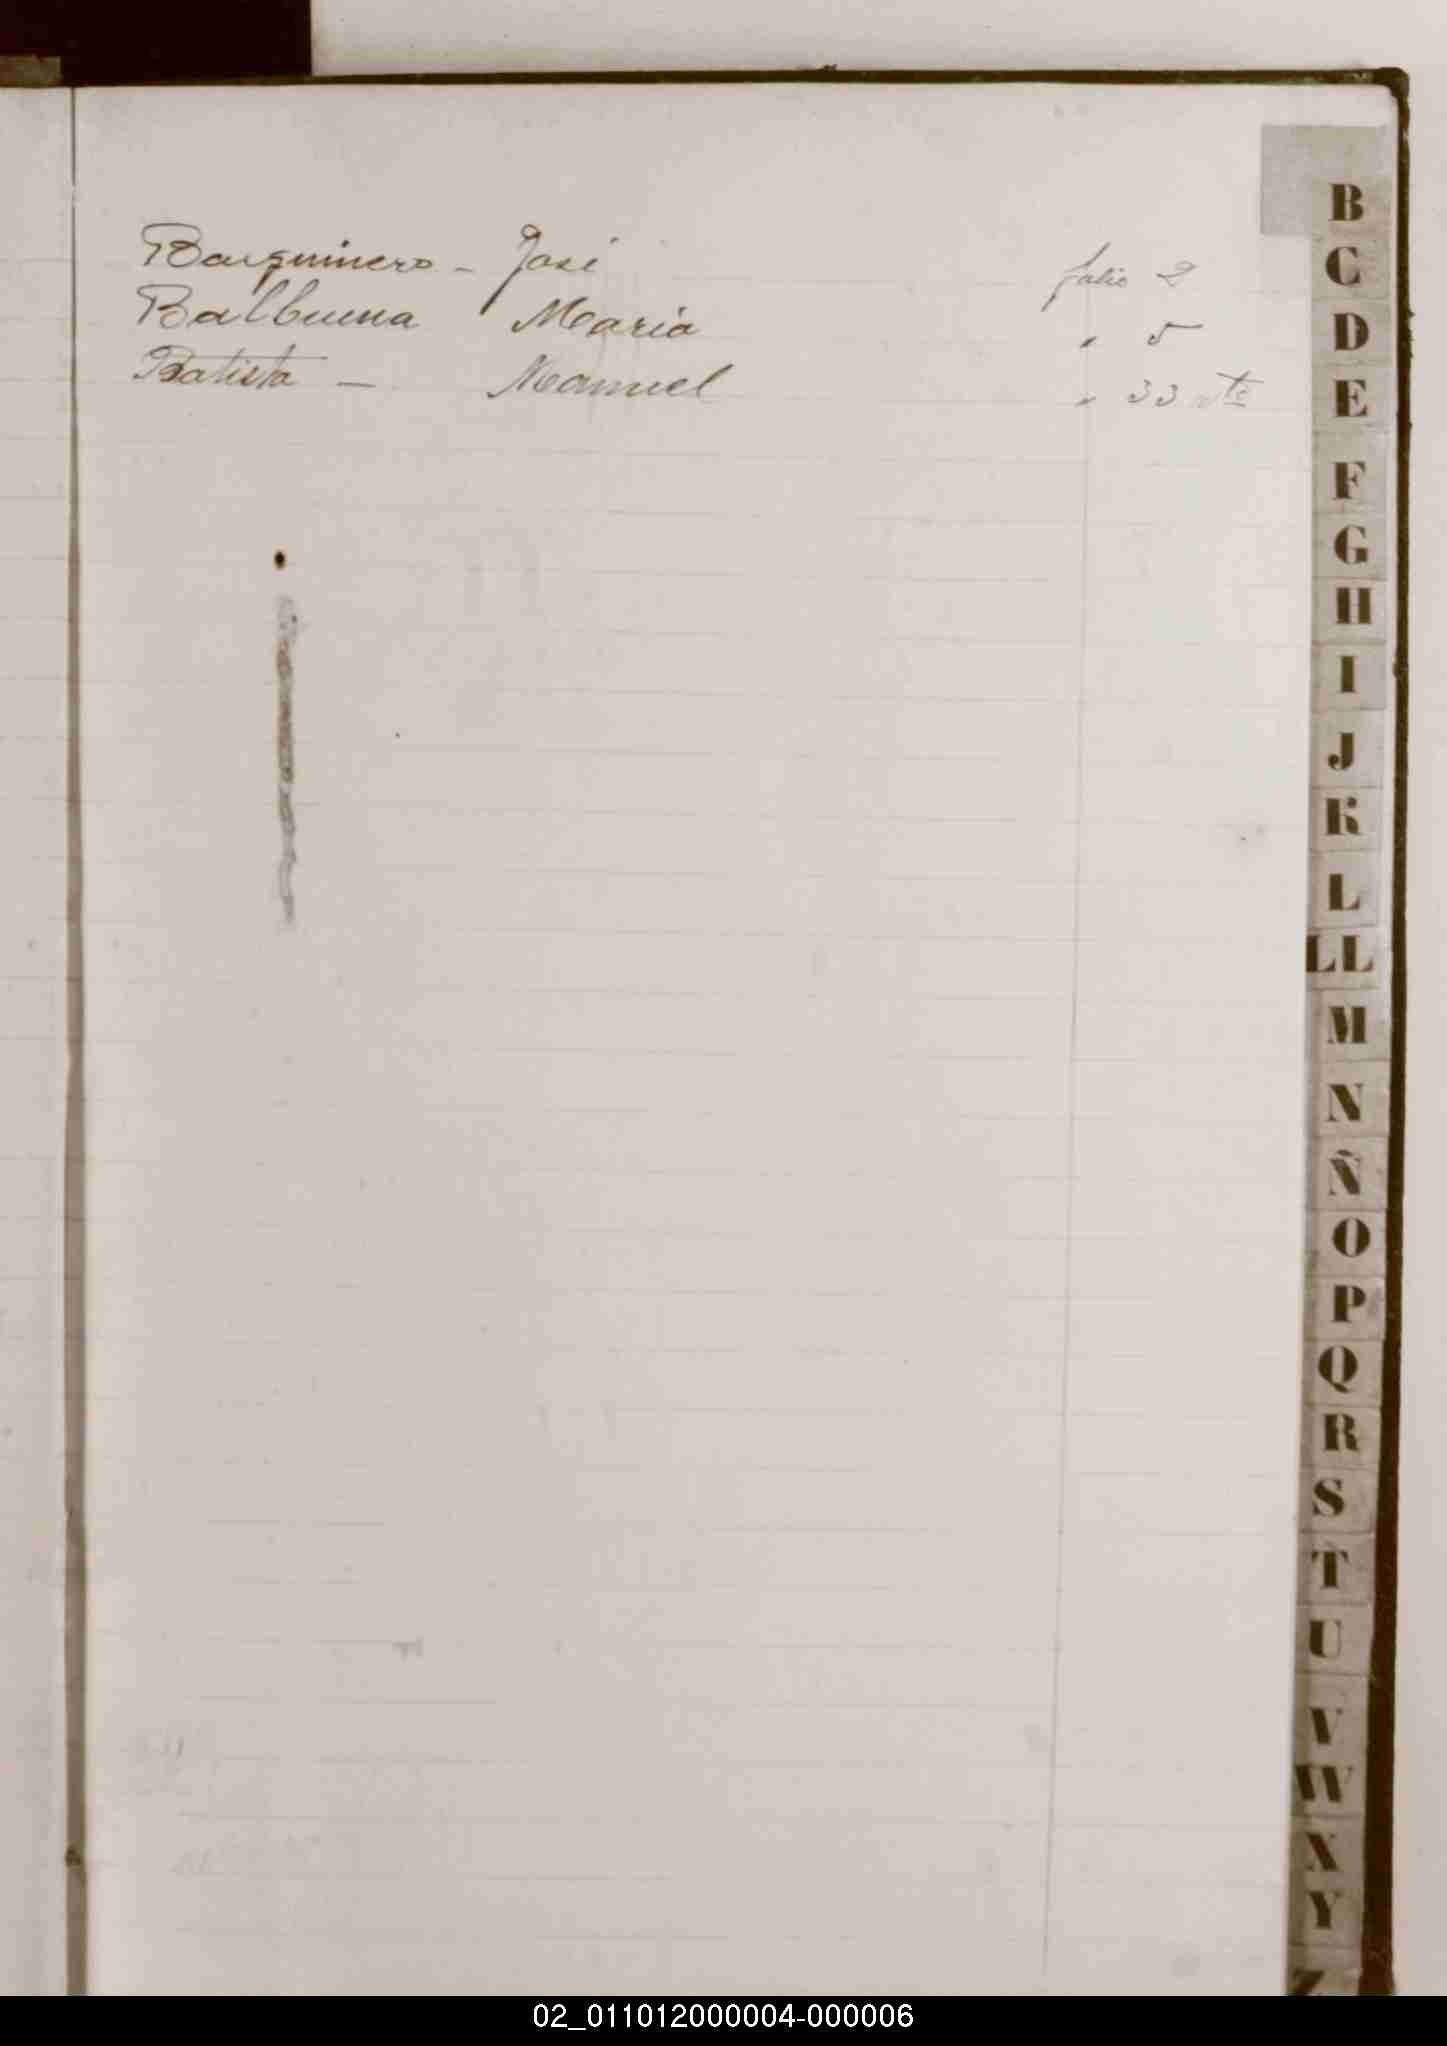 Barquinero - José folio 2
Balbuena María " 5
Batista — Manuel " 33 vto
B
C
D
E
F
G
H
I
J
K
L
LL
M
N
Ñ
O
P
Q
R
S
T
U
V
W
X
Y
Z
02_011012000004-000006